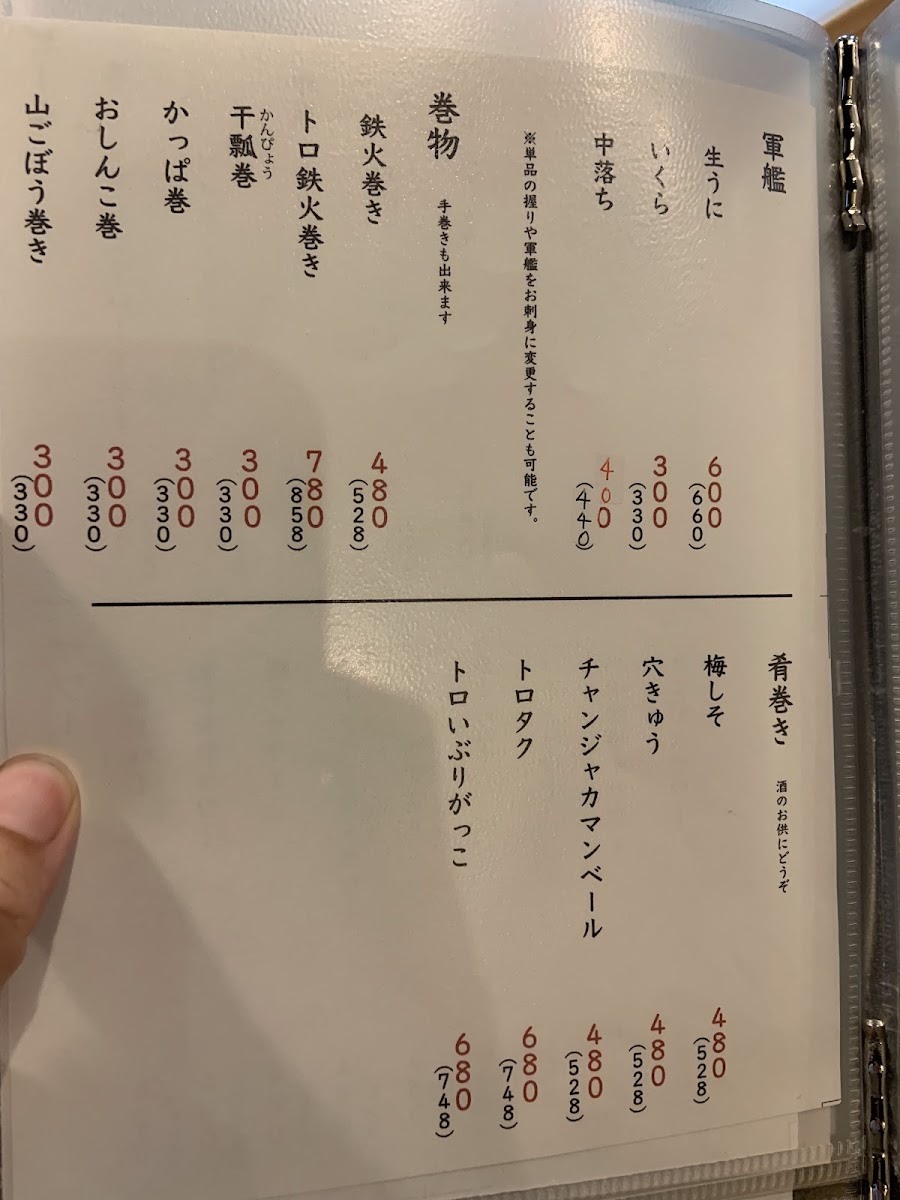 軍艦
生うに 600 (660)
いくら 300 (330)
中落ち 400 (440)
※単品の握りや軍艦をお刺身に変更することも可能です。
巻物 手巻きも出来ます
鉄火巻き 480 (528)
トロ鉄火巻き 780 (858)
かんぴょう
干瓢巻 300 (330)
かっぱ巻 300 (330)
おしんこ巻 300 (330)
山ごぼう巻き 300 (330)
肴巻き 酒のお供にどうぞ
梅しそ 480 (528)
穴きゅう 480 (528)
チャンジャカマンベール 480 (528)
トロタク 680 (748)
トロいぶりがっこ 680 (748)